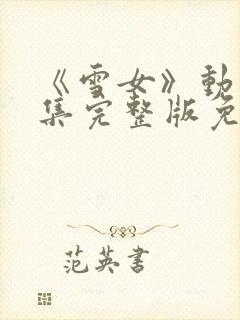 《雪女》動
集完整版免
范英書